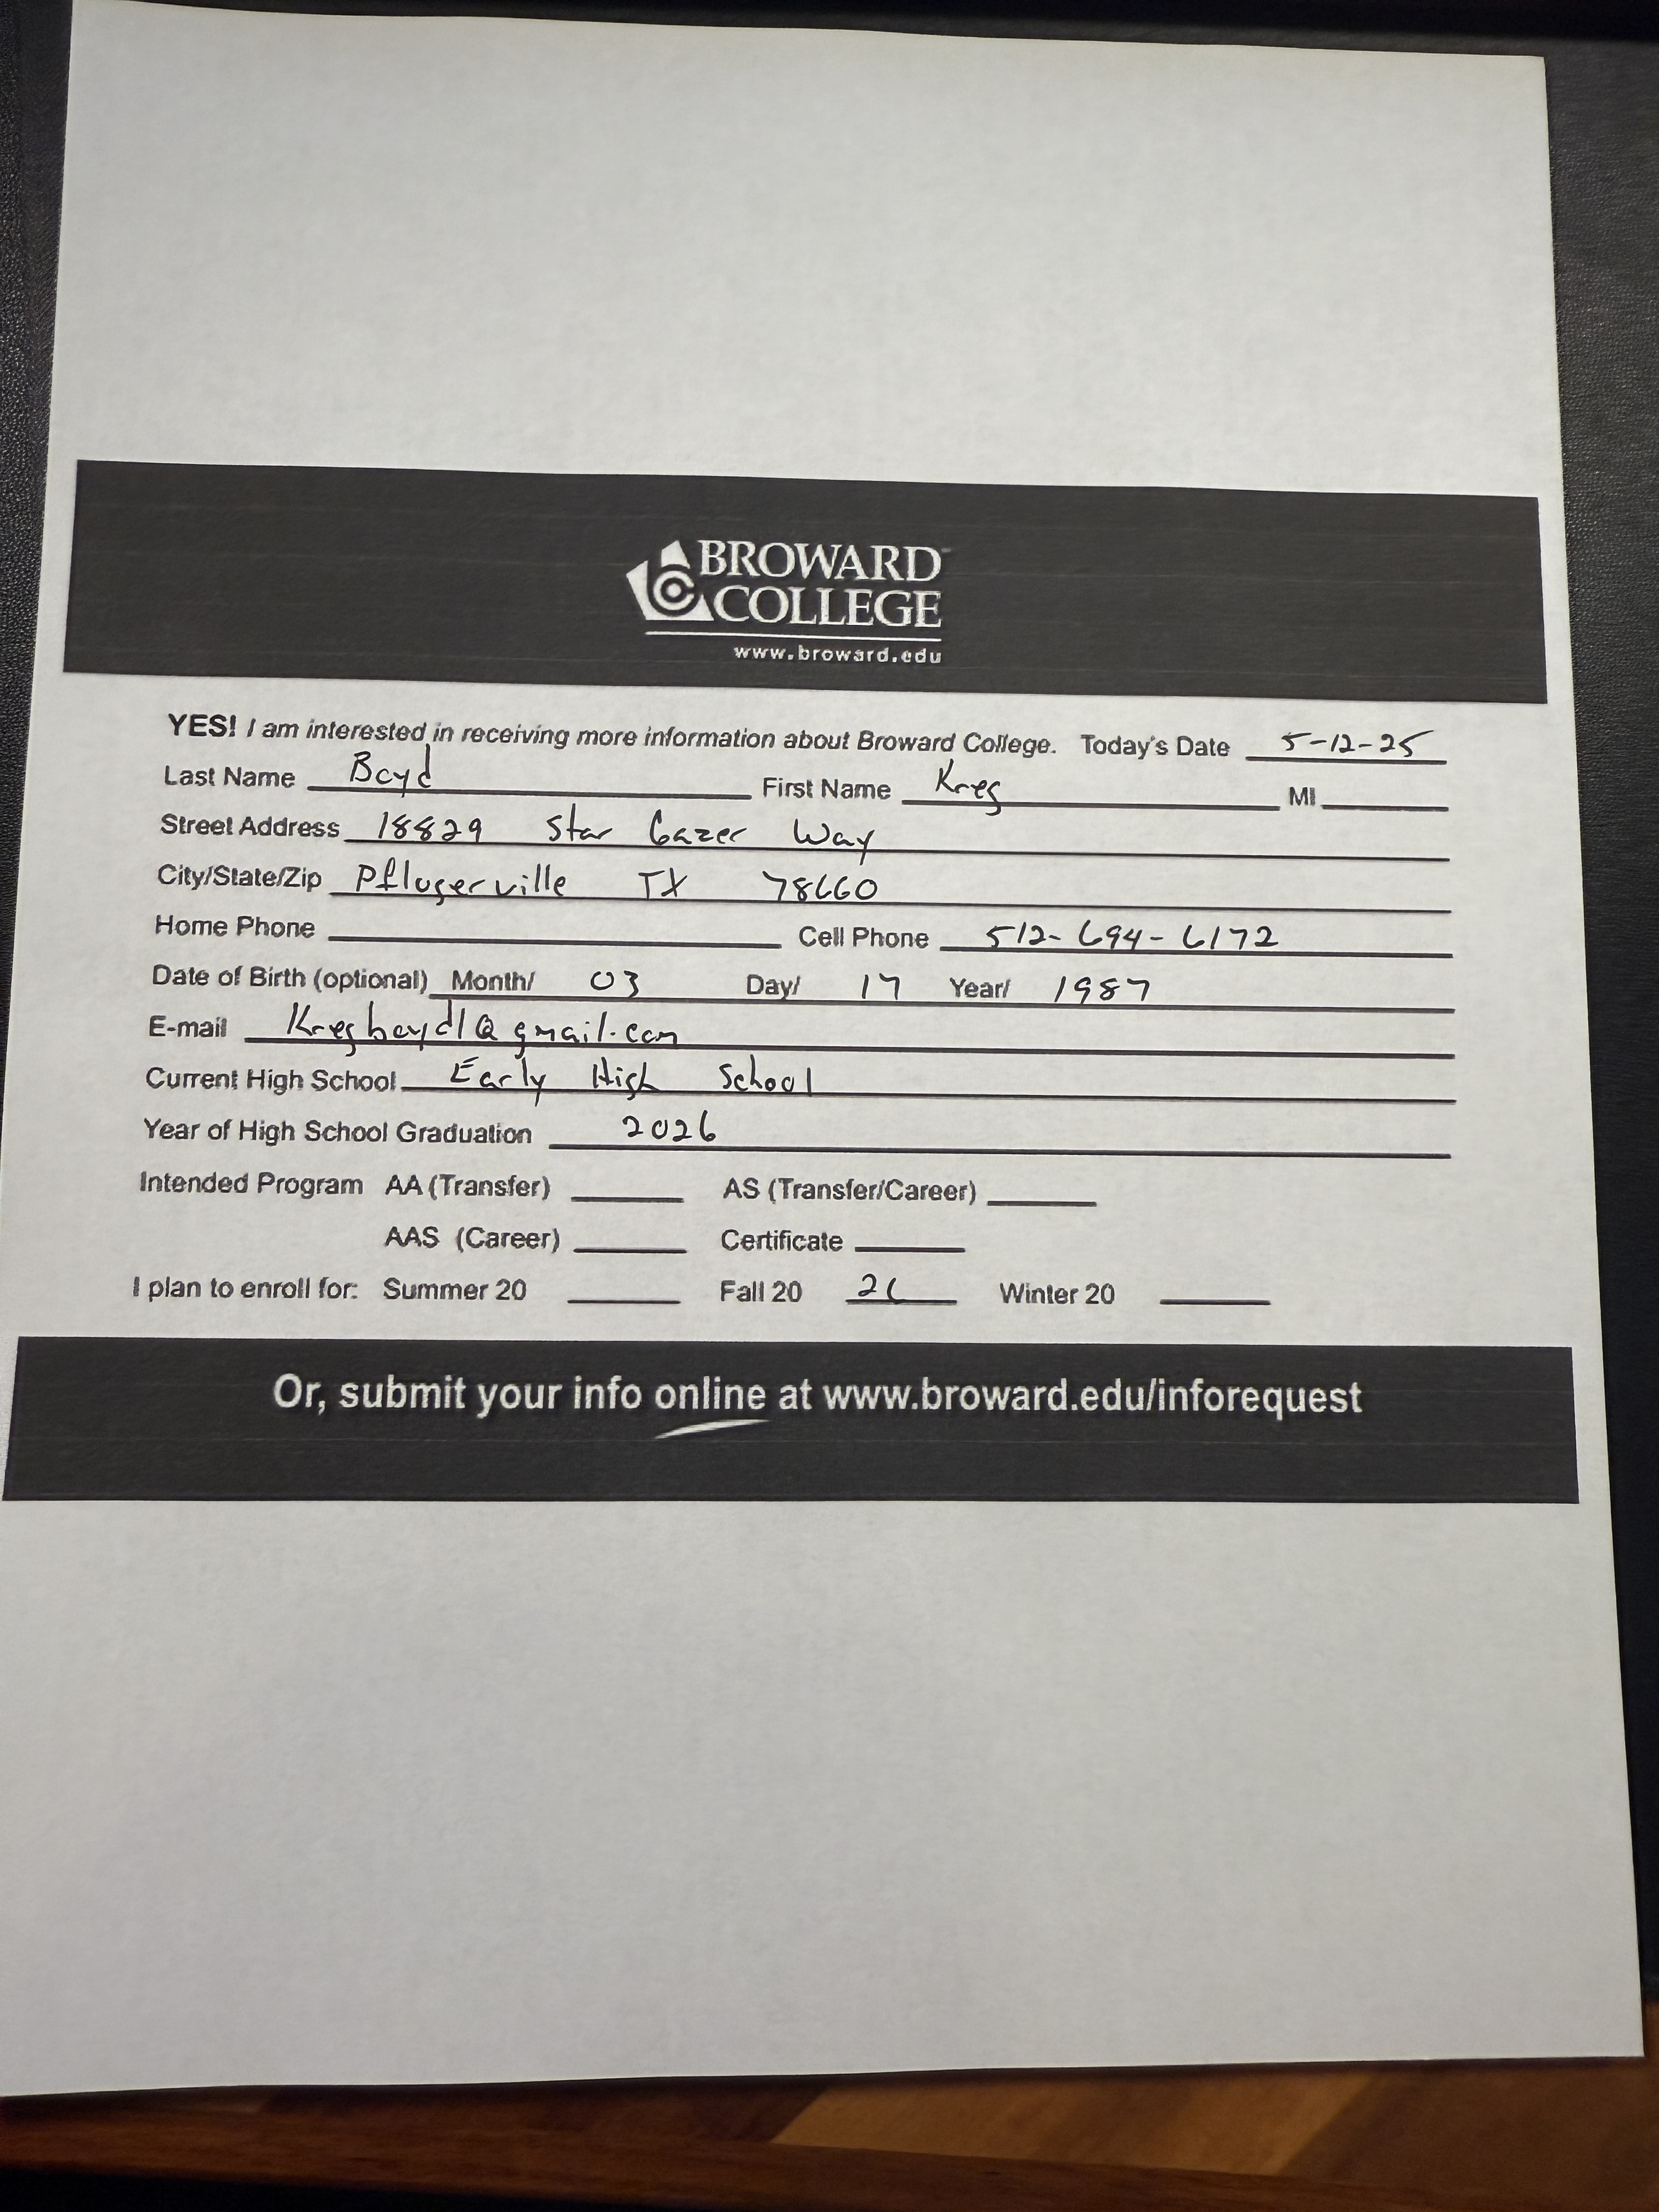 BROWARD
COLLEGE
www.broward.edu
YES! I am interested in receiving more information about Broward College. Today's Date 5-12-25
Last Name Boyd First Name Kreg MI
Street Address 18829 Star Gazer Way
City/State/Zip Pflugerville TX 78660
Home Phone Cell Phone 512-694-6172
Date of Birth (optional) Month/ 03 Day/ 17 Year/ 1987
E-mail Kregboyd1@gmail.com
Current High School Early High School
Year of High School Graduation 2026
Intended Program AA (Transfer) AS (Transfer/Career)
AAS (Career) Certificate
I plan to enroll for: Summer 20 Fall 20 26 Winter 20
Or, submit your info online at www.broward.edu/inforequest